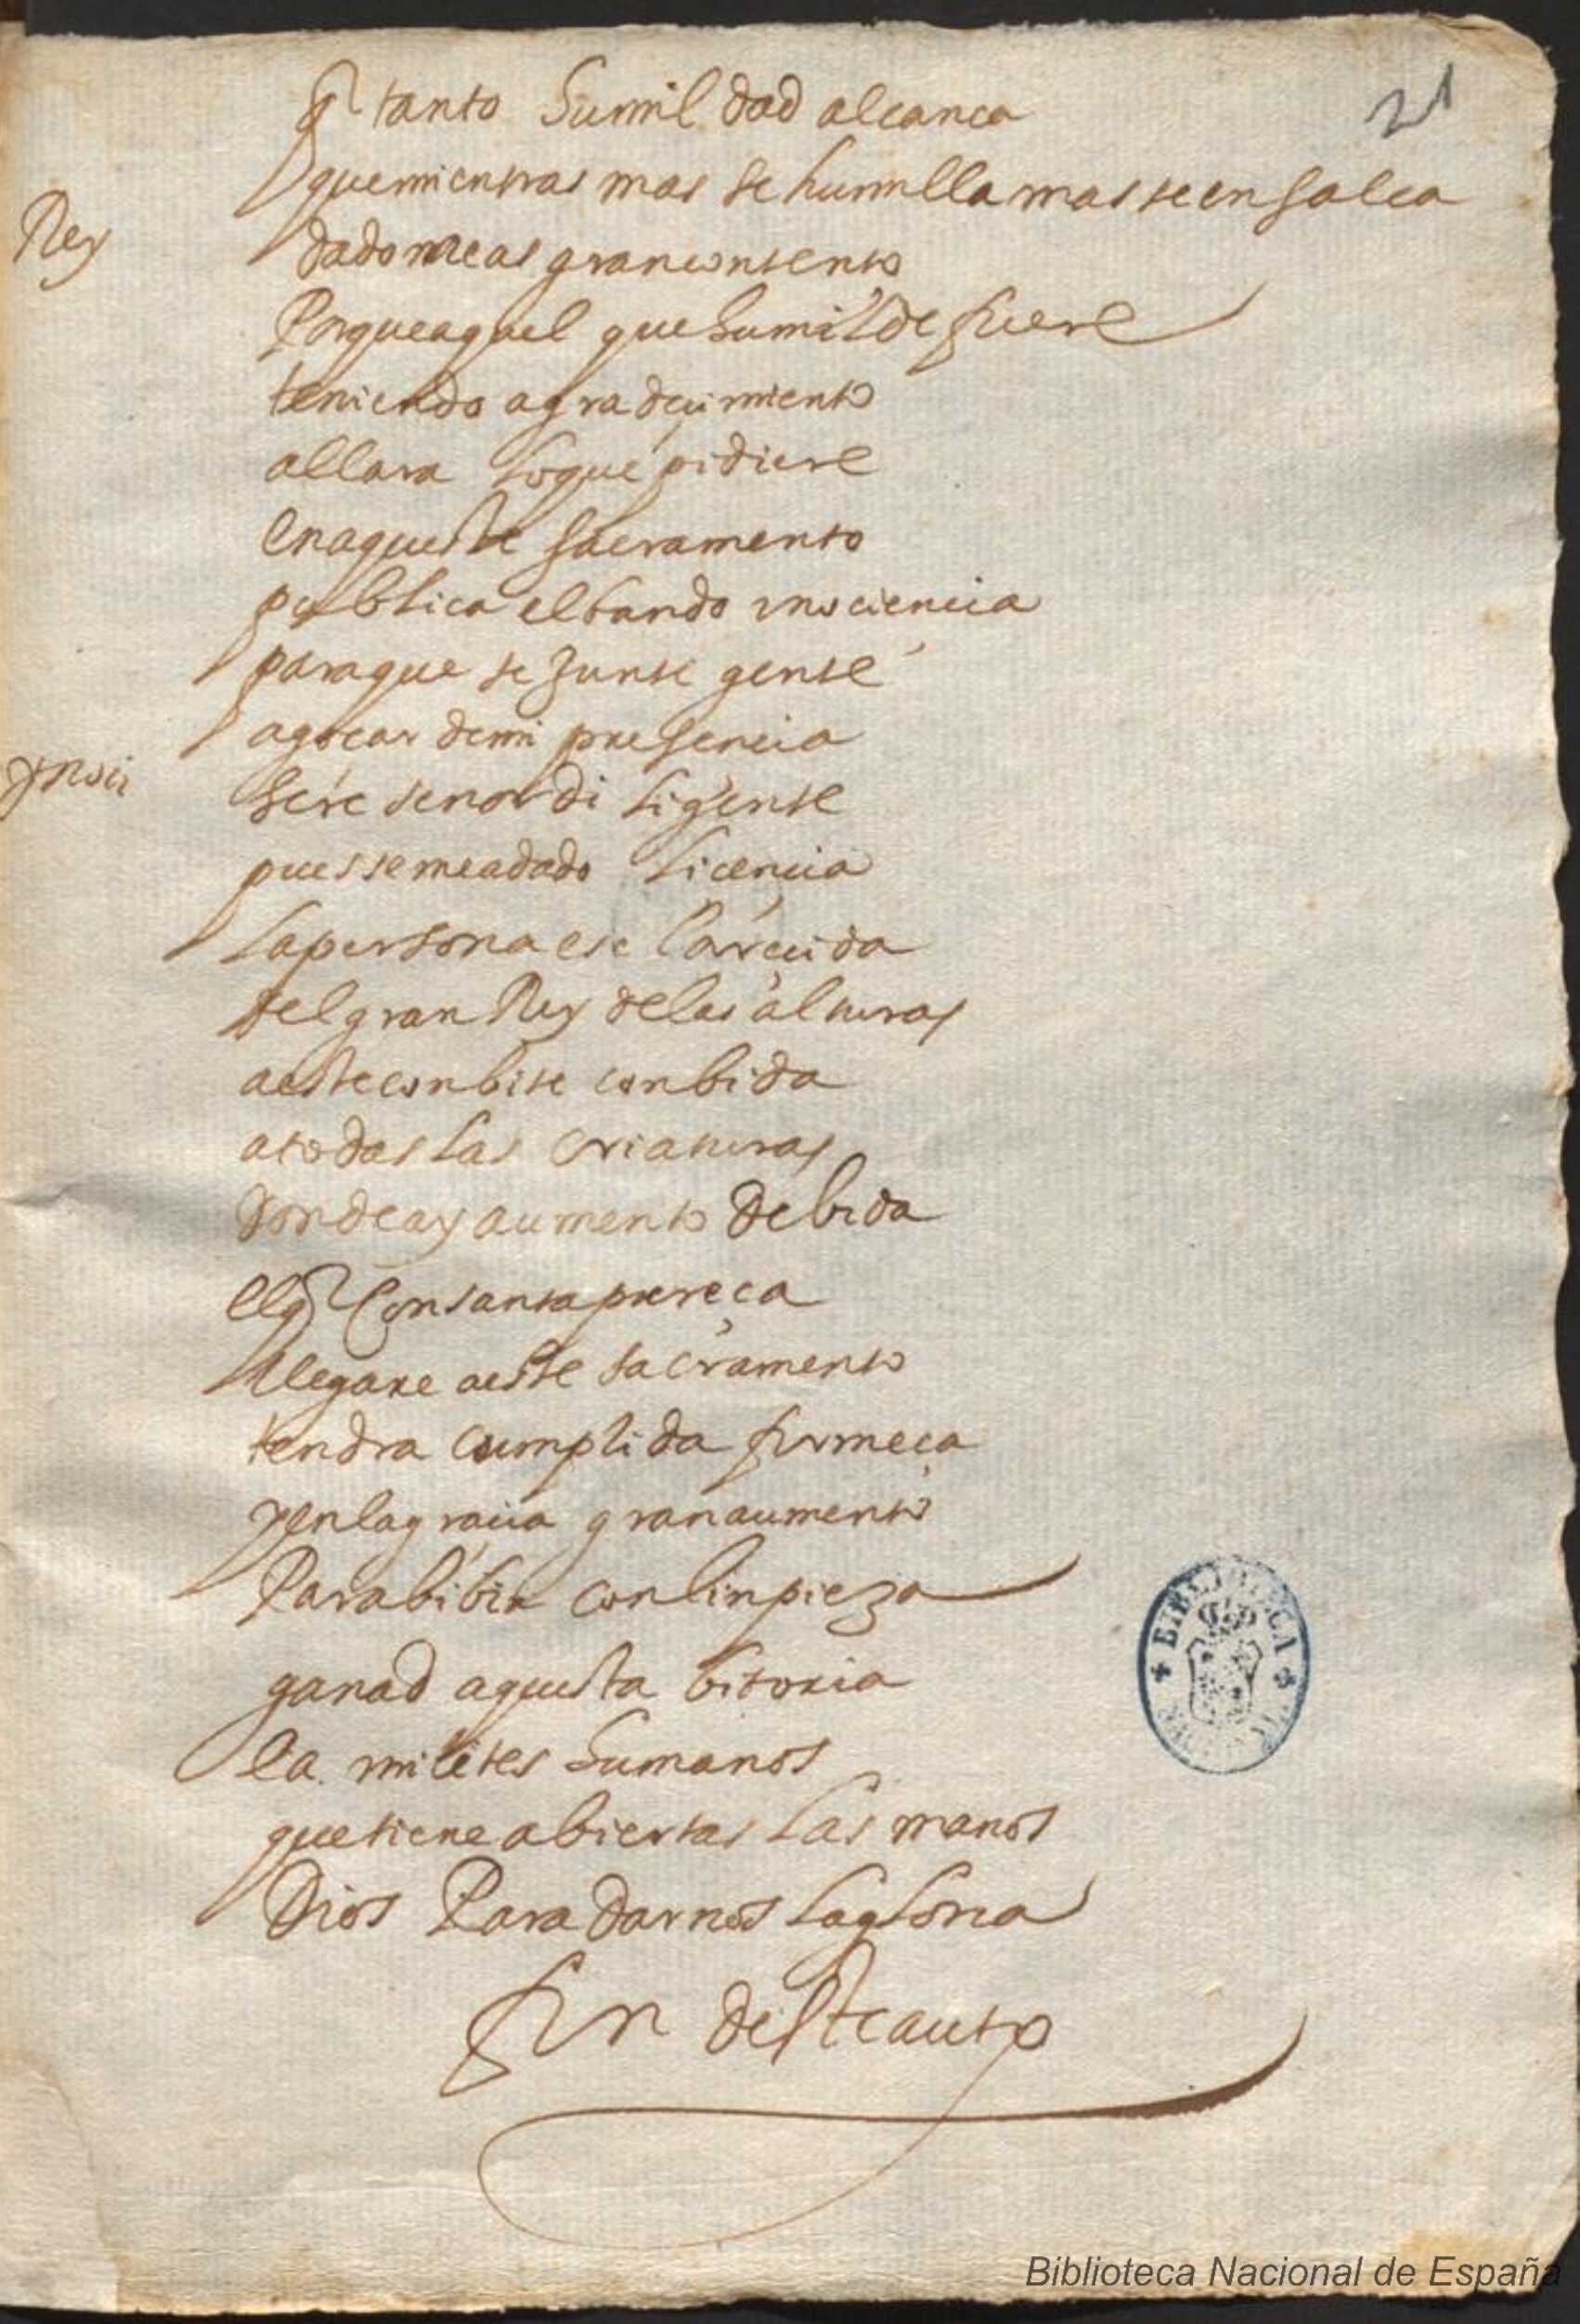 21
q tanto humildad alcanca
que mientras mas se humilla mas se ensalca
Rey dado me as gran contento
Porque aquel que humilde fuere
teniendo agradeçimiento
allara lo que pidiere
en aqueste sacramento
publica el bando ynociencia
para que se junte gente
a goçar de mi presencia
ynoci sere señor diligente
pues se me a dado licencia
la persona esclareçida
del gran Rey de las alturas
a este conbite conbida
a todas las criaturas
donde ay aumento de bida
el q con santa pureça
llegare a este sacramento
tendra cumplida firmeça
y en la gracia gran aumento
Para bibir con linpieza
ganad aquesta bitoria
ea milites humanos
que tiene abiertas las manos
Dios Para darnos la gloria
fin deste auto
BIBLIOTECA
Biblioteca Nacional de España